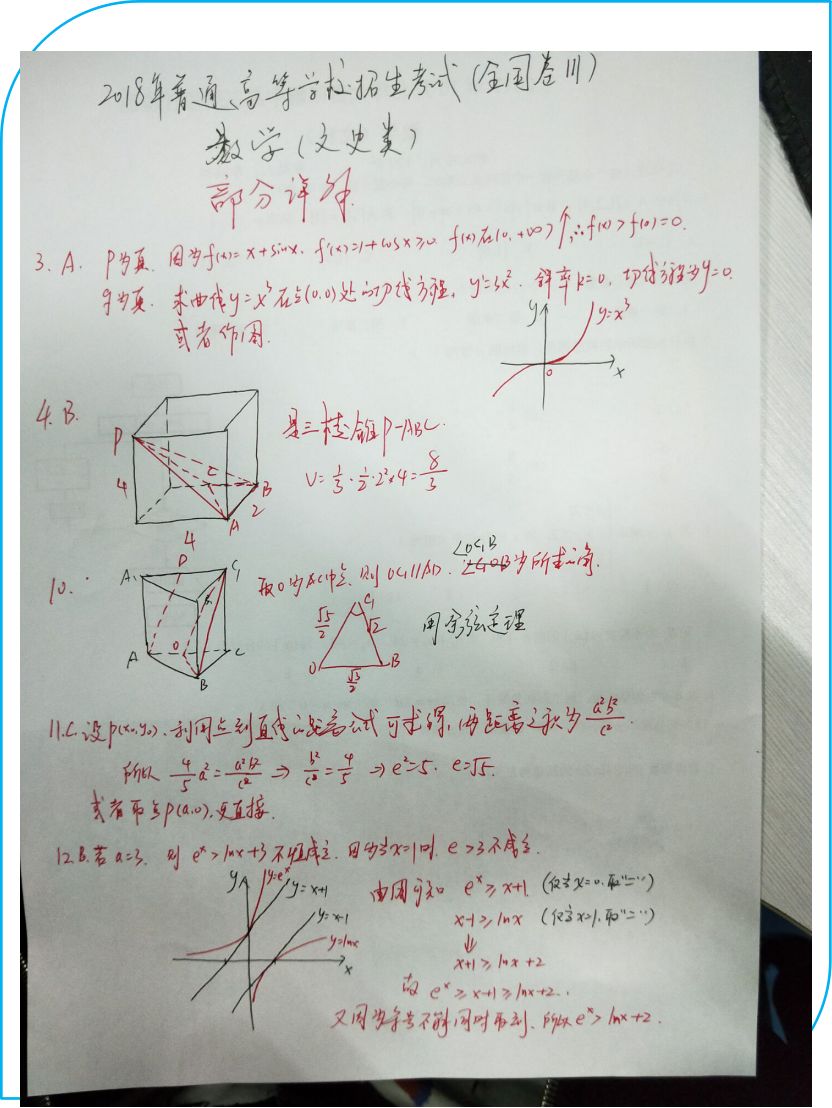 2018年普通高等学校招生考试(全国卷III)
数学(文史类)
部分详解.
3. A. P为真. 因为f(x)=x+sinx. f'(x)=1+cosx≥0. f(x)在(0,+∞)↑, ∴f(x)>f(0)=0.
q为真. 求曲线y=x³在点(0,0)处的切线方程, y'=3x². 斜率k=0, 切线方程为y=0.
或者作图.
y
y=x³
0
x
4. B.
P
4
C
B
2
A
4
是三棱锥P-ABC.
V=1/3·1/2·2²×4=8/3
10.
A₁
D
C₁
B₁
A
O
C
B
取O为AC中点, 则OC₁//AD. ∠OC₁B为所求的角.
√5/2
C₁
√2
O
B
√3/2
用余弦定理
11. C. 设P(x₀,y₀). 利用点到直线的距离公式可求得, 两距离之积为a²b²/c².
所以 4/5a²=a²b²/c² ⇒ b²/c²=4/5 ⇒e²=5. e=√5.
或者取点P(a,0), 更直接.
12. B. 若a=3, 则 eˣ>lnx+3不恒成立. 因为当x=1时, e>3不成立.
y
y=eˣ
y=x+1
y=x-1
y=lnx
x
由图可知 eˣ≥x+1 (仅当x=0, 取"=")
x-1≥lnx (仅当x=1, 取"=")
⇓
x+1≥lnx+2
故 eˣ≥x+1≥lnx+2.
又因为等号不能同时取到, 所以eˣ>lnx+2.